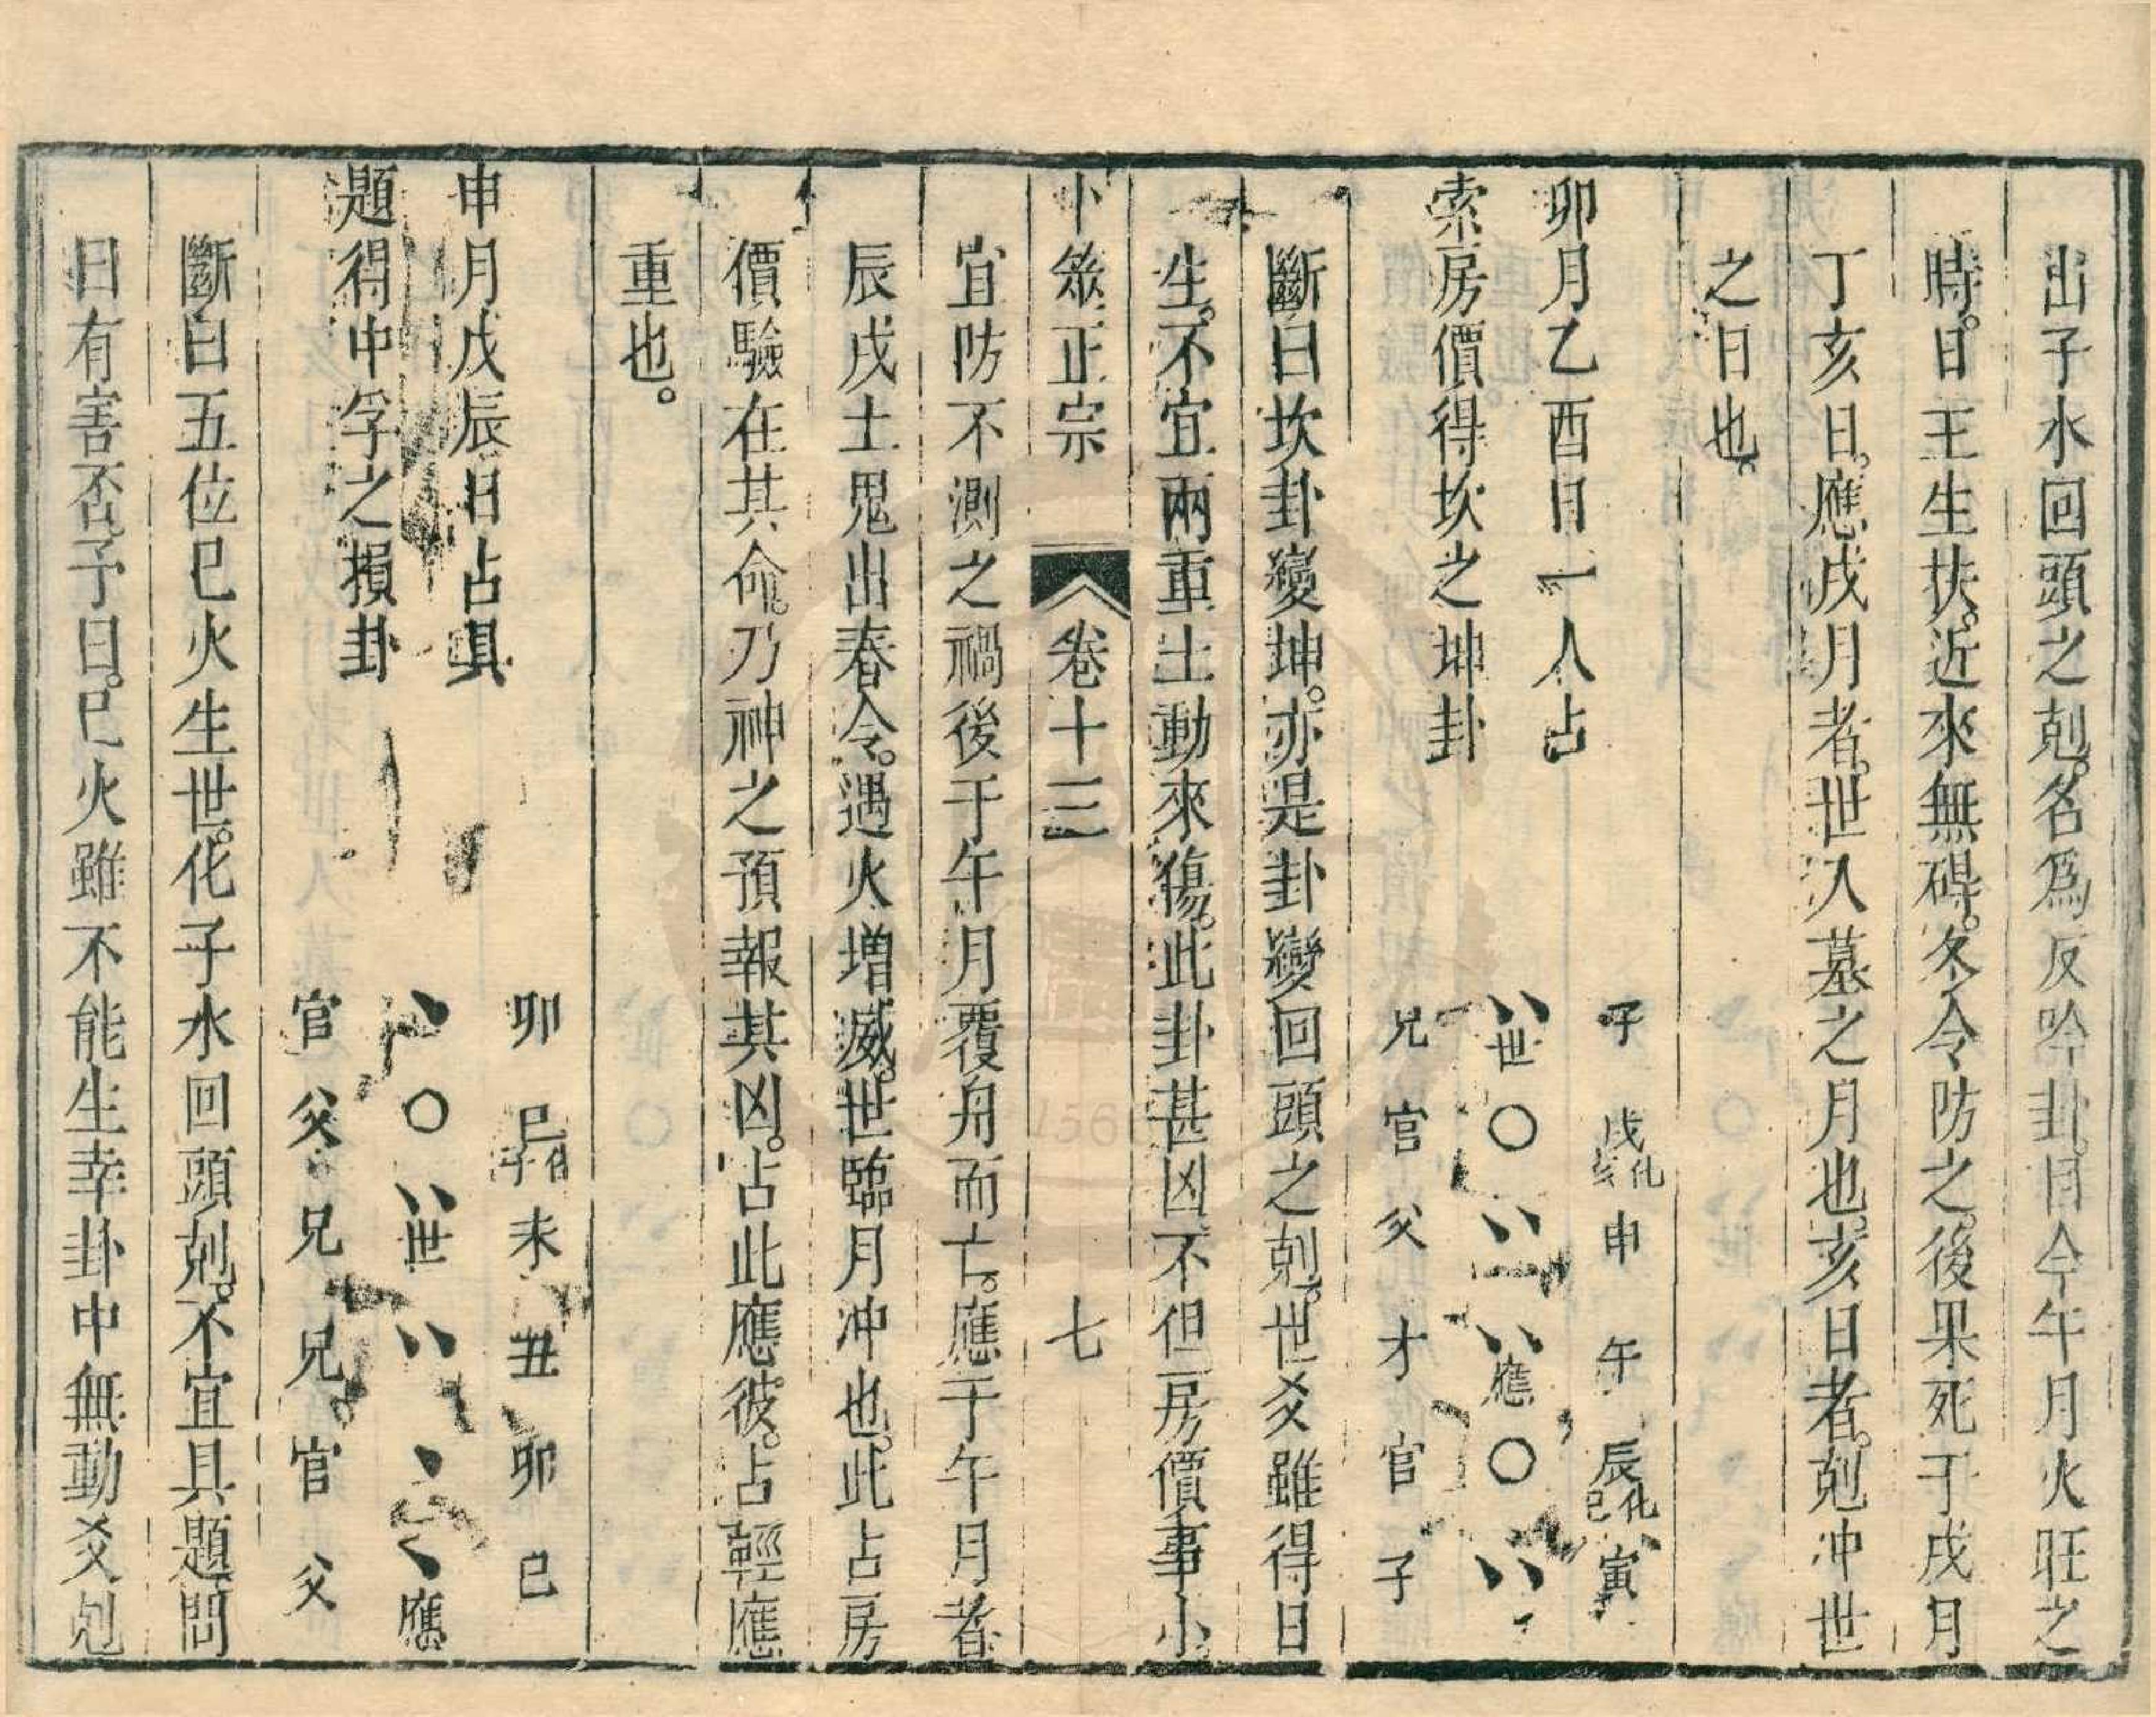 出子水回頭之剋。名為反吟卦。目今午月火旺之
時。日王生扶。近來無碍。冬令防之。後果死于戌月
丁亥日。應戌月者。世入墓之月也。亥日者。剋冲世
之日也。
卯月乙酉日一人占
索房價得坎之坤卦
子 戌化亥 申 午 辰化巳 寅
世 應
兄 官 父 才 官 子
斷曰坎卦變坤。亦是卦變回頭之剋。世爻雖得日
生。不宜兩重土動來傷。此卦甚凶不但房價事小
卜筮正宗 卷十三 七
宜防不測之禍後于午月覆舟而亡。應于午月者
辰戌土鬼出春令。遇火增威。世臨月冲也。此占房
價驗在其命。乃神之預報其凶。占此應彼。占輕應
重也。
申月戊辰日占具
題得中孚之損卦
卯 巳化子 未 丑 卯 巳
世 應
官 父 兄 兄 官 父
斷曰五位巳火生世。化子水回頭剋。不宜具題問
日有害否。予曰。巳火雖不能生幸卦中無動爻剋